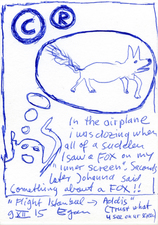 C R
In the airplane
i was dozing when
all of a sudden
I saw a FOX on my
"inner screen". Seconds
later Johannd said
something about a FOX!!
"Flight Istanbul → Addis"
9 XII 15
(Trust what